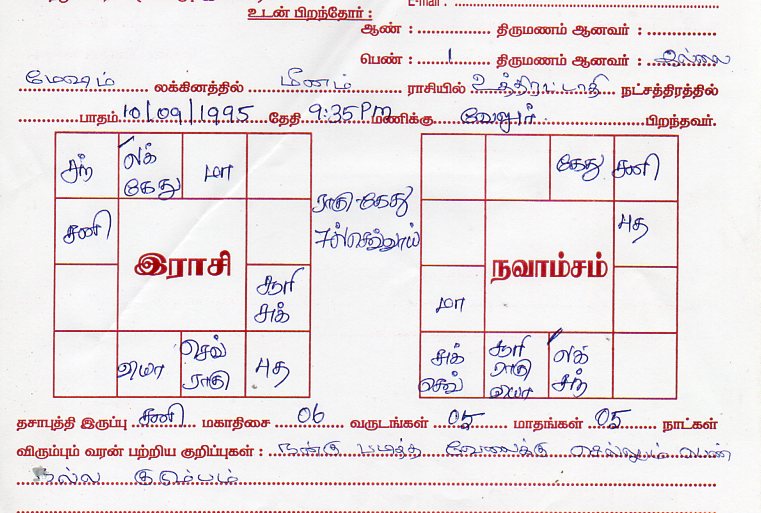 E-mail :
உடன் பிறந்தோர் :
ஆண் : திருமணம் ஆனவர் :
பெண் : 1 திருமணம் ஆனவர் : இல்லை
மேஷம் லக்கினத்தில் மீனம் ராசியில் உத்திரட்டாதி நட்சத்திரத்தில்
பாதம் 10/09/1995 தேதி 9:35 PM மணிக்கு வேலூர் பிறந்தவர்.
சந் லக் கேது மா
சனி
இராசி
சூரி சுக்
செவ் ராகு புத
ராகு-கேது
7ல் செவ்வாய்
கேது சனி
புத
நவாம்சம்
மா
சுக் செவ் சூரி ராகு லக் சந்
தசாபுத்தி இருப்பு சனி மகாதிசை 06 வருடங்கள் 05 மாதங்கள் 05 நாட்கள்
விரும்பும் வரன் பற்றிய குறிப்புகள் : நன்கு படித்த வேலைக்கு செல்லும் பெண்
நல்ல குடும்பம்